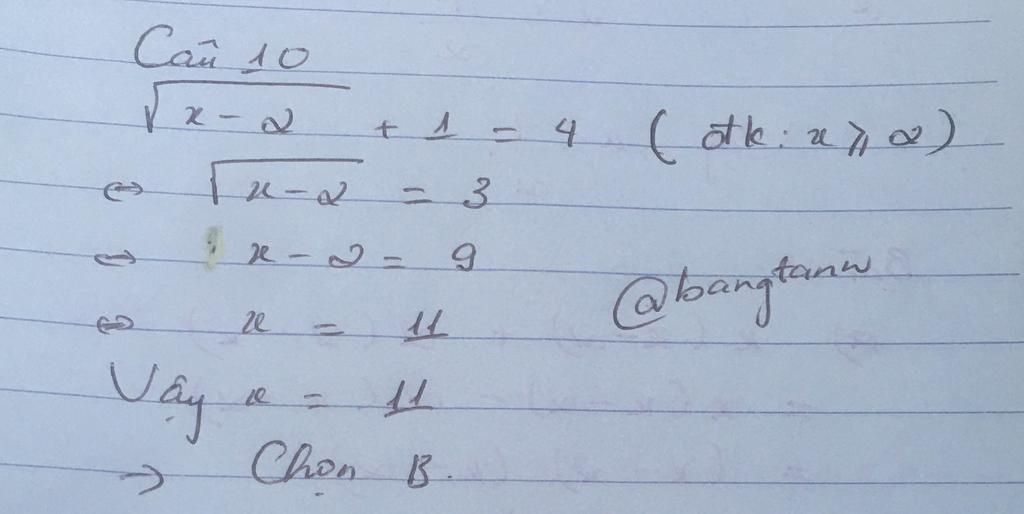 Câu 10
√(x - 2) + 1 = 4 (đk: x ⩾ 2)
⇔ √(x - 2) = 3
⇔ x - 2 = 9
⇔ x = 11
@bangtanw
Vậy x = 11
→ Chọn B.